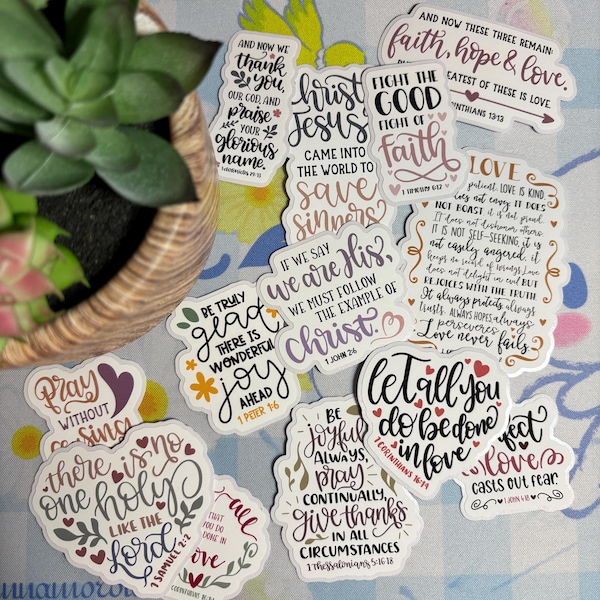 AND NOW WE
thank
you,
OUR GOD, AND
praise
YOUR
glorious
name.
1 Chronicles 29:13
Christ
Jesus
CAME INTO
THE WORLD TO
save
sinners
FIGHT THE
GOOD
FIGHT OF
faith
1 TIMOTHY 6:12
AND NOW THESE THREE REMAIN:
faith, hope & love.
GREATEST OF THESE IS LOVE.
CORINTHIANS 13:13
LOVE
patient, LOVE IS KIND
does not envy, IT DOES
NOT BOAST it is not proud.
It does not dishonor others,
IT IS NOT SELF-SEEKING, it is
not easily angered, it
keeps no record of wrongs. Love
does not delight in evil BUT
REJOICES WITH THE TRUTH
It always protects always
trusts, ALWAYS HOPES, always
perseveres
Love never fails.
IF WE SAY
we are His,
WE MUST FOLLOW
THE EXAMPLE OF
Christ.
1 JOHN 2:6
BE TRULY
glad
THERE IS
WONDERFUL
joy
AHEAD
1 PETER 1:6
let all you
do be done
in love
1 CORINTHIANS 16:14
pray
WITHOUT
ceasing
there is no
one holy
LIKE THE
Lord
1 SAMUEL 2:2
all
THAT YOU
DO
DONE IN
love
CORINTHIANS 16:14
BE
joyful
ALWAYS,
pray
CONTINUALLY,
give thanks
IN ALL
CIRCUMSTANCES
1 Thessalonians 5:16-18
love
CASTS OUT FEAR.
1 JOHN 4:18